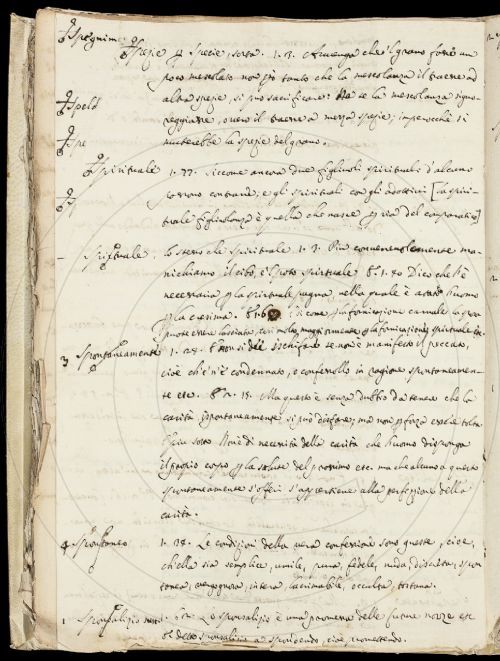 Spegnim
Spezie p Spezie, sorta. 1. 13. Avvenga che 'l grano fosse un
poco mescolato non più tanto che la mescolanza il traesse ad
altra spezie, si può sacrificare: Ma se la mescolanza signo-
Speld
reggiasse, ovvero il traesse a mezza spezie, imperocchè si
Spe
muterebbe la spezie del grano.
Spirituale 1. 77. Siccome ancora due figliuoli spirituali d'alcuno
Sp
e gli spirituali con gli adottivi [la spiri-
tuale figliolanza è quella che nasce p via del comparatico]
Spirituale. lo stesso che spirituale 1. 3. Più convenevolemente ma-
nichiamo il cibo, e 'l poto spirituale
necessaria p la spirituale pugna, nella quale è uomo
p la cresima. siccome p la fornicazione carnale la
puote essere lasciata, così molto maggiormente p la fornicazione spirituale
3 Spontaneamente 1. se non è manifesto il peccato,
cioè ch'e' n'è condennato, o confessollo in ragione spontaneamen-
te etc. 15. Ma questo è senza dubbio da tenere che la
carità spontaneamente si può ma non p forza essere tolta.
sotto di necessità della carità che l'uomo disponga
il proprio corpo p la salute del prossimo etc. ma che alcuno a questo
spontaneamente s'offeri s'appartiene alla perfezione della
carità.
Spontaneo 1. 38. Le condizioni della vera confessione sono queste, cioè,
ch'ella sia semplice, umile, pura, fedele, nuda, discreta, spon
tanea, vergognosa, intera, lacrimabile, occulta,
1 Sponsalizio Lo sponsalizio è una promessa delle future nozze etc
è detto sponsalizio a spondendo, cioè promettendo.